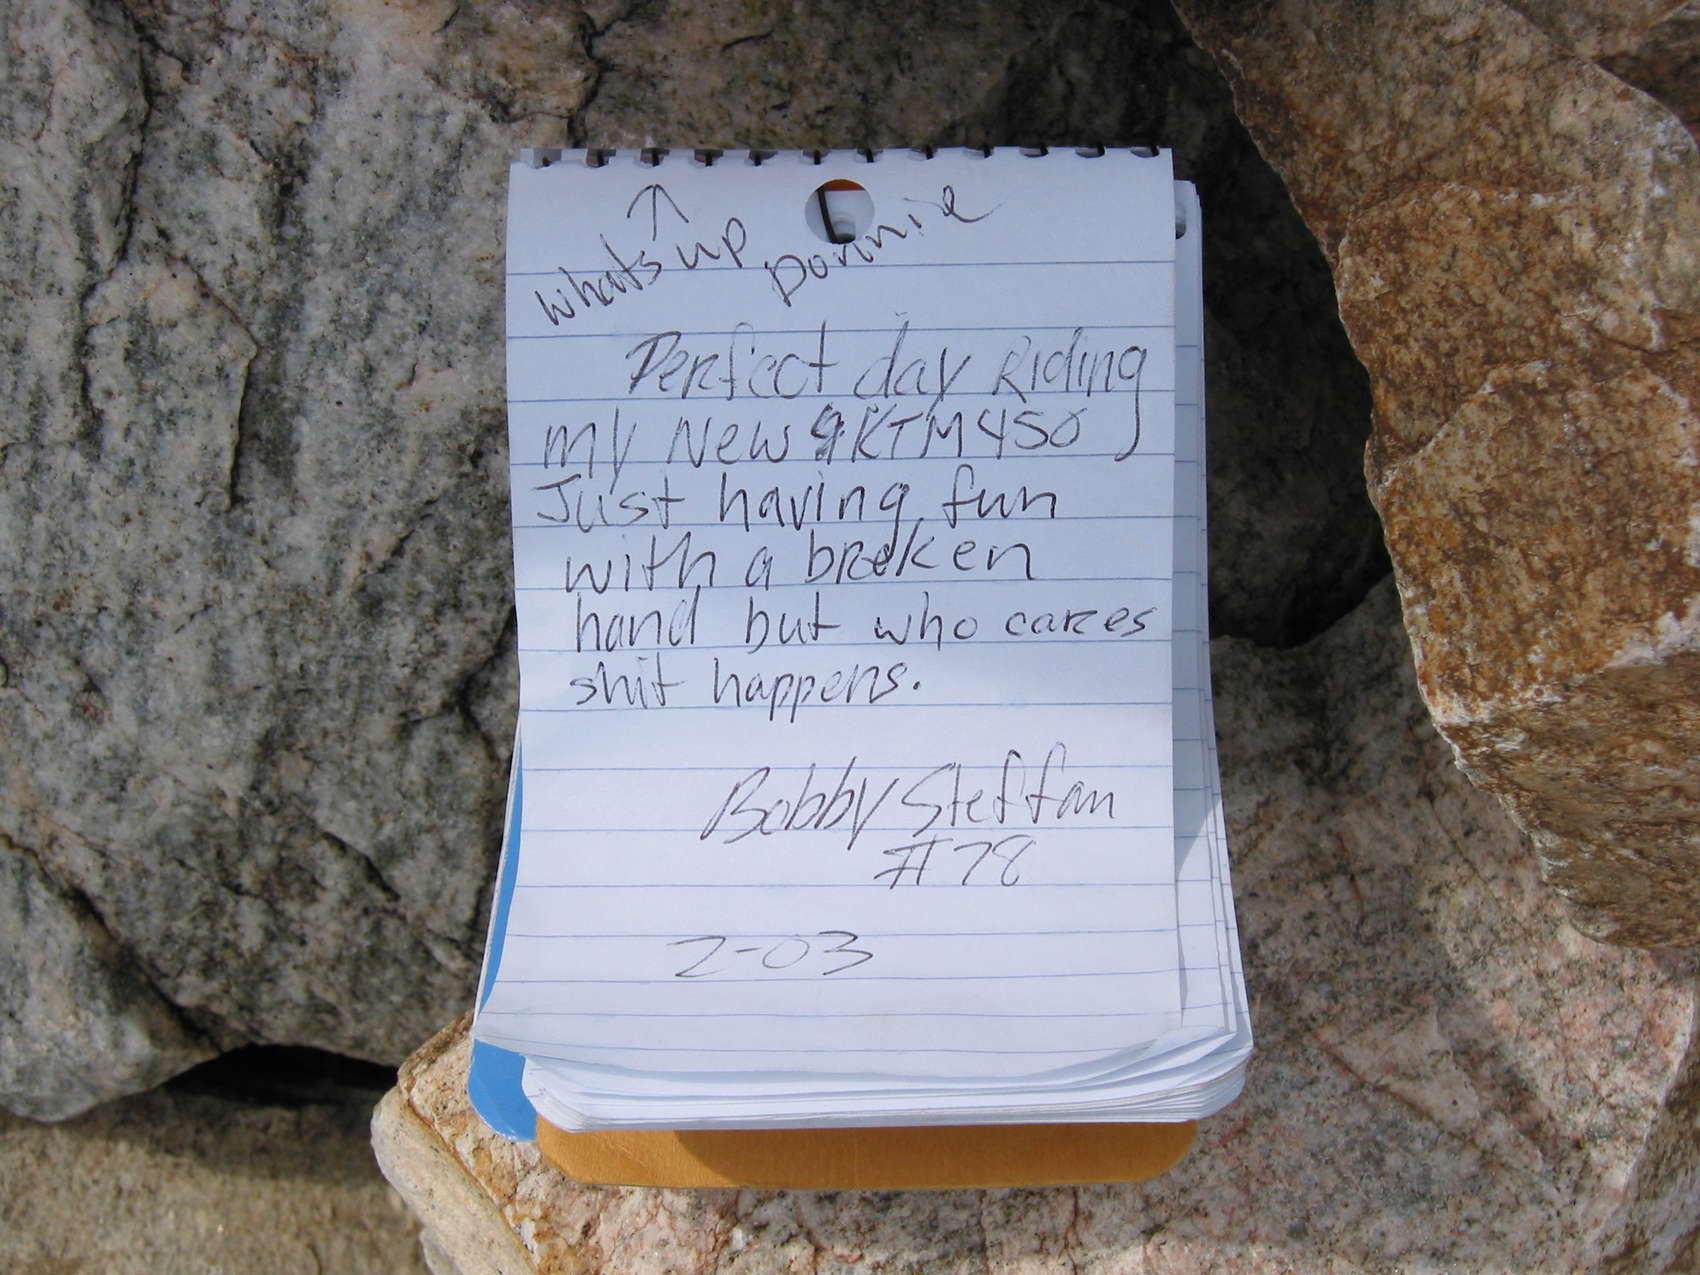 whats up Donnie
Perfect day Riding
my New KTM 450
Just having fun
with a broken
hand but who cares
shit happens.
Bobby Steffan
#78
2-03